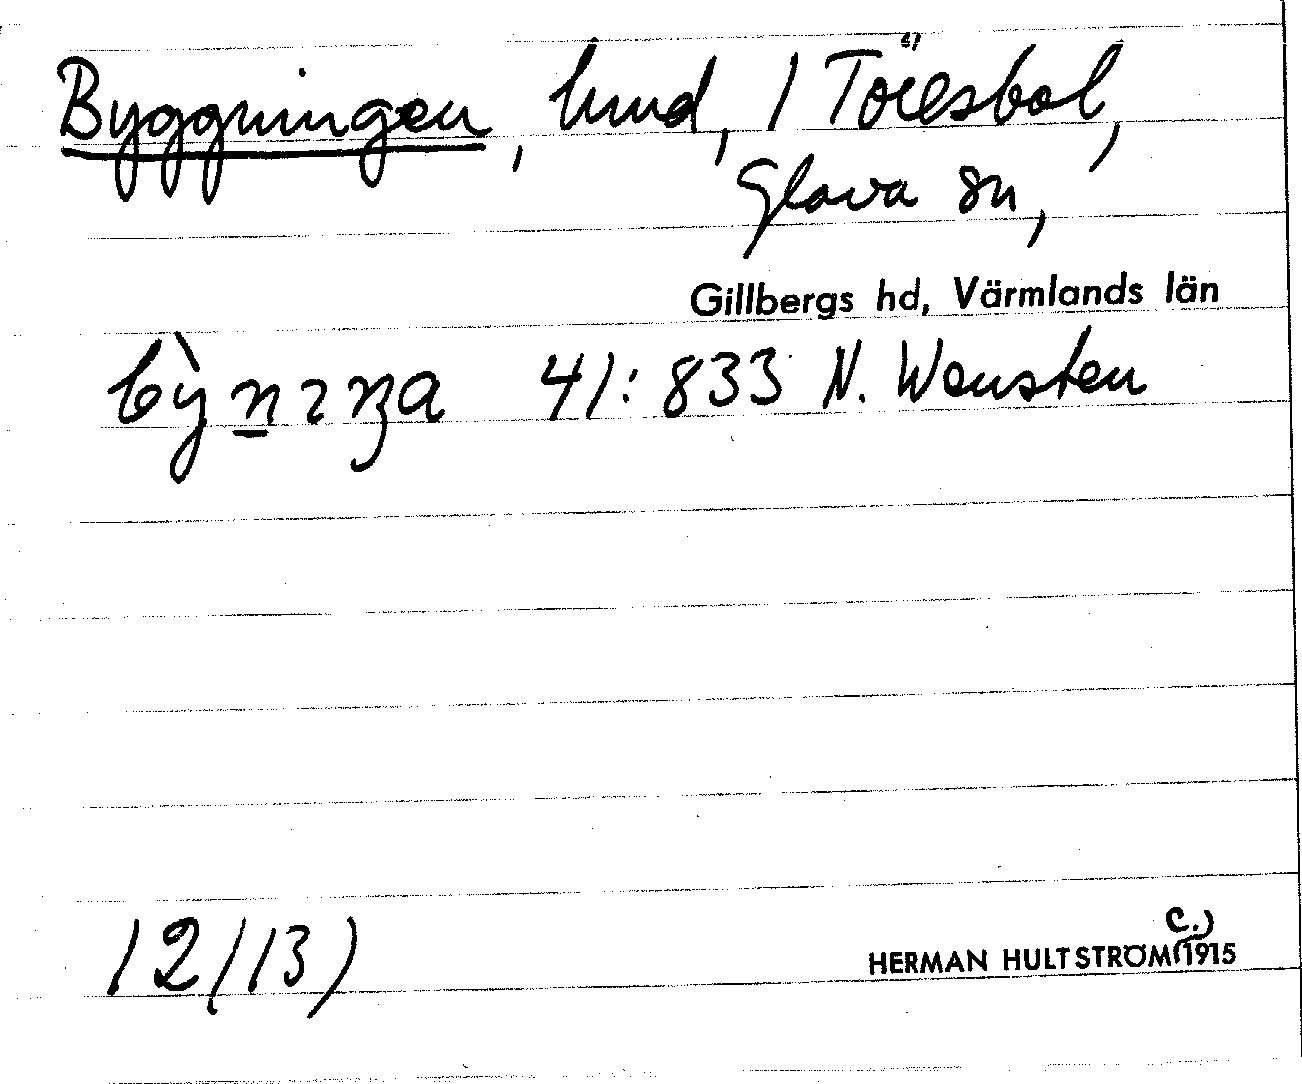 Byggningen, lund, 1 Töresbol,
Glava sn,
Gillbergs hd, Värmlands län
41:833 N. Wensten
12/13)
HERMAN HULTSTRÖM (c.) 1915